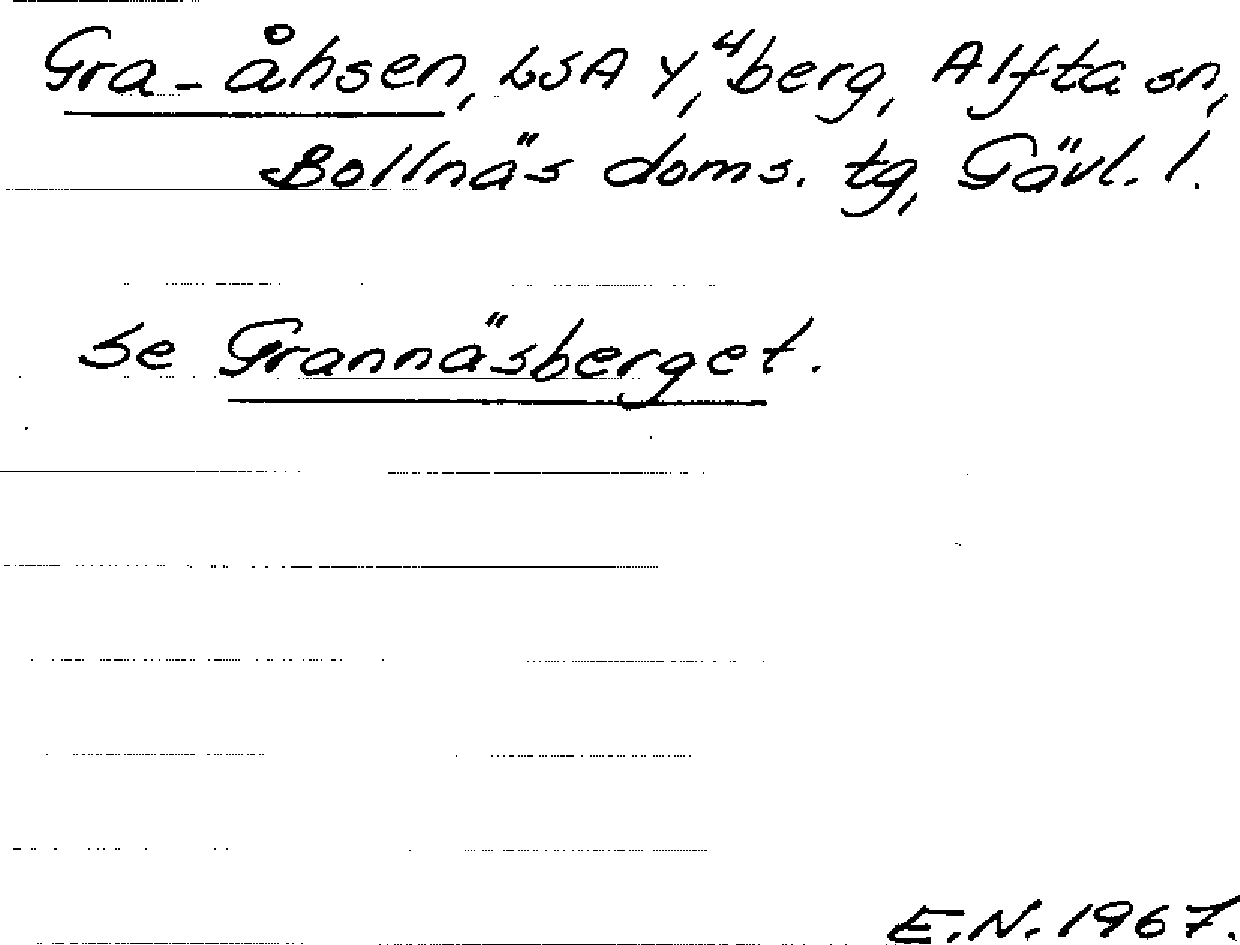 Gra-åhsen, LSA Y, "berg, Alfta sn,
Bollnäs doms. tg, Gävl. l.
Se Grannäsberget.
E.N. 1967.